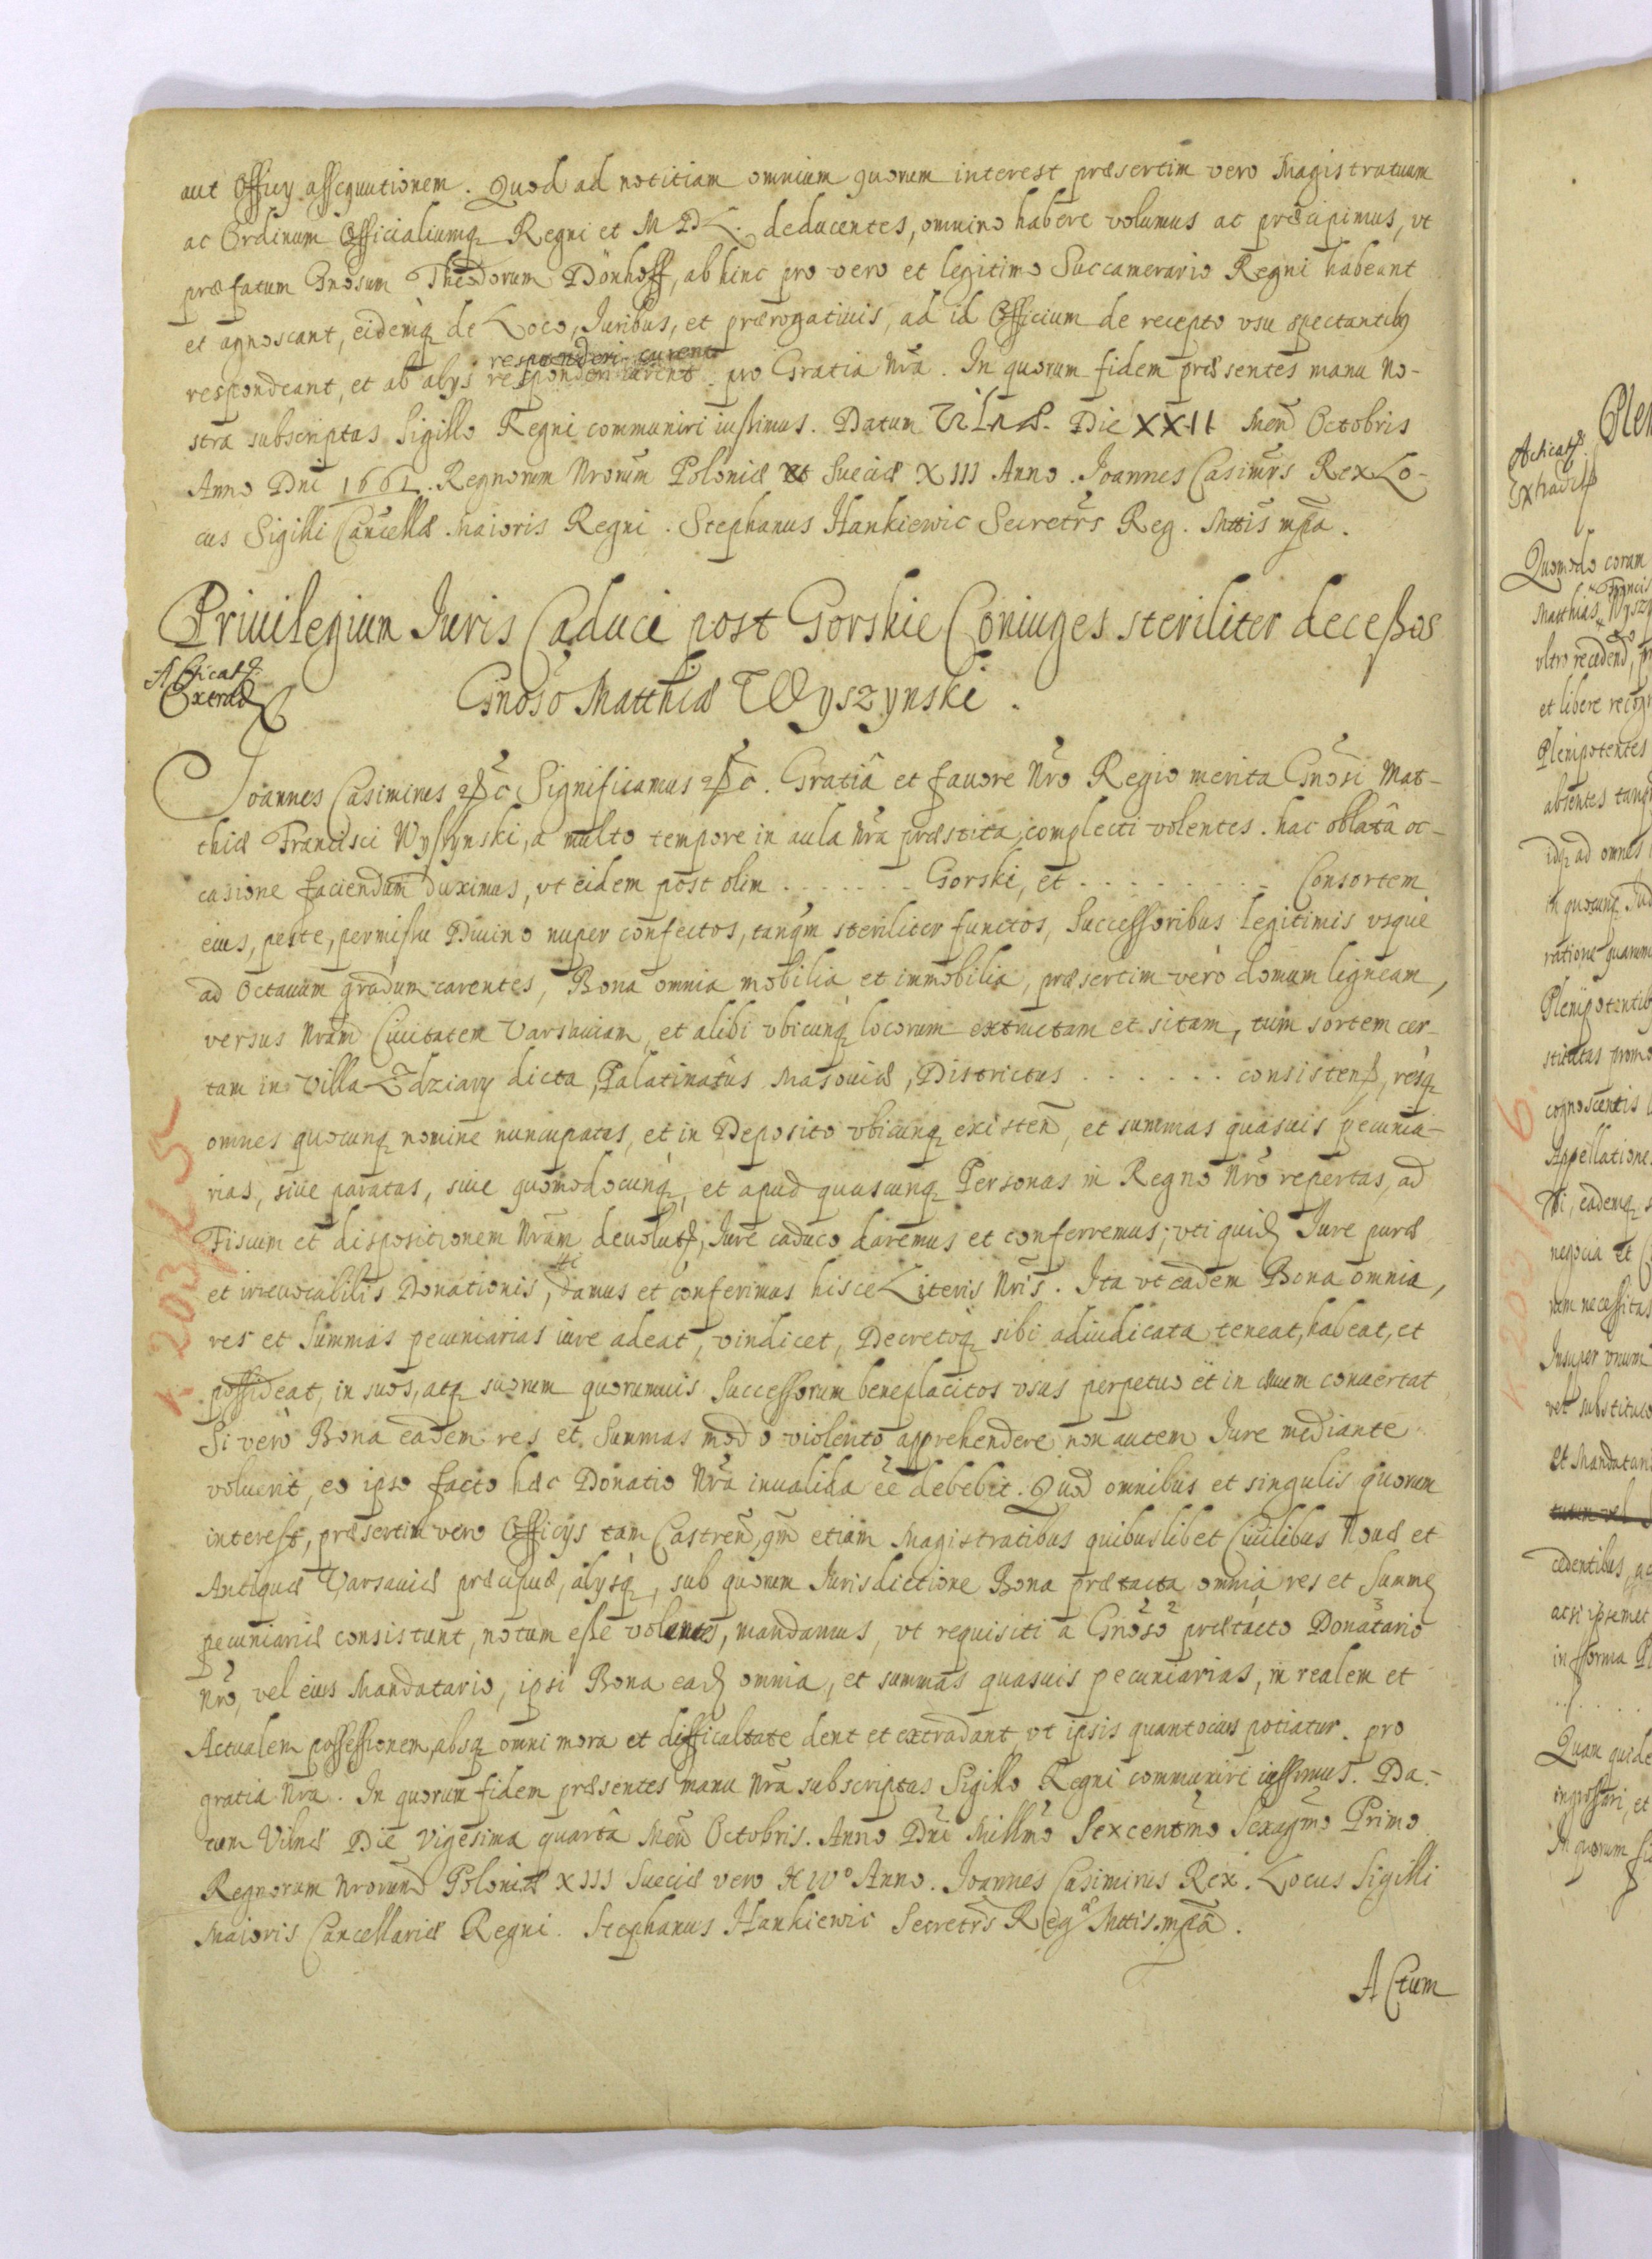 aut Officij assequutionem. Quod ad notitiam omnium quorum interest præsertim vero Magistratuum
ac Ordinum Officialiumq Regni et M D L. deducentes, omnino habere volumus ac præcipimus, vt
præfatum Gnosum Theodorum Dönhoff, ab hinc pro vero et legitimo Succamerario Regni habeant
et agnoscant, eidemq de Loco, Iuribus, et prærogatiuis, ad id Officium de recepto vsu spectantibus
responderi curent
respondeant, et ab alijs responderi curent pro Gratia Nra. In quorum fidem præsentes manu No-
stra subscriptas Sigillo Regni communiri iussimus. Datum Vilnæ. Die XXII Men Octobris
Anno Dni 1661. Regnorum Nrorum Poloniæ et Sueciæ XIII Anno. Joannes Casimirs Rex Lo-
cus Sigilli Cancellæ Maioris Regni. Stephanus Hankiewic Secretrs Reg. Mttis mpa.
Priuilegium Iuris Caduci post Gorskie Coniuges steriliter decessos
Acticat.
Extrad
Gnoso Matthiæ Wyszynski.
Joannes Casimirus &c Significamus &c. Gratiâ et fauore Nro Regio merita Gnosi Mat-
thiæ Francisci Wyszynski, a multo tempore in aula Nra præstita, complecti volentes. hac oblatâ oc-
casione faciendum duximus, vt eidem post olim . . . . . . . Gorski, et . . . . . . . . . Consortem
eius, peste, permissu Diuino nuper confectos, tanqm steriliter functos, Successoribus legitimis vsque
ad Octauum gradum carentes, Bona omnia mobilia et immobilia, præsertim verò domum ligneam,
versus Nram Ciuitatem Varsauiam, et alibi vbicunq locorum extructam et sitam, tum sortem cer-
tam in Villa Zdziary dicta, Palatinatus Masouiæ, Districtus . . . . . . consisten, resq
omnes quocunq nomine nuncupatas, et in Deposito vbicunq existen, et summas quasuis pecunia-
rias, siue paratas, siue quomodocunq, et apud quascunq Personas in Regno Nro repertas, ad
Fiscum et dispositionem Nram deuolut, Iure caduco daremus et conferremus; vti quid Iure puræ
et irreuocabilis Donationis, damus et conferimus hisce Literis Nris. Ita vt eadem Bona omnia,
res et Summas pecuniarias iure adeat, vindicet, Decretoq sibi adiudicata teneat, habeat, et
possideat, in suos, atq suorum quorumuis Successorum beneplacitos vsus perpetuo et in æuum conuertat
Si verò Bona eadem res et Summas modo violento apprehendere non autem Iure mediante
voluerit, eo ipso facto hæc Donatio Nra inualida ee debebit. Quod omnibus et singulis quorum
interest, præsertim vero Officijs tam Castren, qm etiam Magistratibus quibuslibet Ciuilibus Nouæ et
Antiquæ Varsauiæ præcipuæ, alijsq, sub quorum Iurisdictione Bona prætacta omnia res et Summe
pecuniariæ consistunt, notum esse volentes, mandamus, vt requisiti a Gnoso prætacto Donatario
Nro, vel eius Mandatario, ipsi Bona ead omnia, et summas quasuis pecuniarias, in realem et
Actualem possessionem, absq omni mora et difficultate dent et extradant, vt ipsis quantocius potiatur. pro
gratia Nra. In quorum fidem præsentes manu Nra subscriptas Sigillo Regni communiri iussimus. Da-
tum Vilnæ Die Vigesima quarta Men Octobris. Anno Dni Millmo Sexcentmo Sexagmo Primo
Regnorum Nrorum Poloniæ XIII Sueciæ vero XIVo Anno. Joannes Casimirus Rex. Locus Sigilli
Maioris Cancellariæ Regni. Stephanus Hankiewic Secretrs Reg Mttis mpa.
Actum
Acticat.
Quomodo coram
Matthias Wyszy
et libere recog
Plenipotentes
absentes tanq
idq ad omnes
ratione quarum
Plenipotentib
cognoscentis
Appellatione
negocia et
rum necessitas
Insuper vnum
vel substituto
et Mandatari
cedentibus, ac
ac si ipsemet
in forma
Quam quide
ingrossari, et
In quorum fi